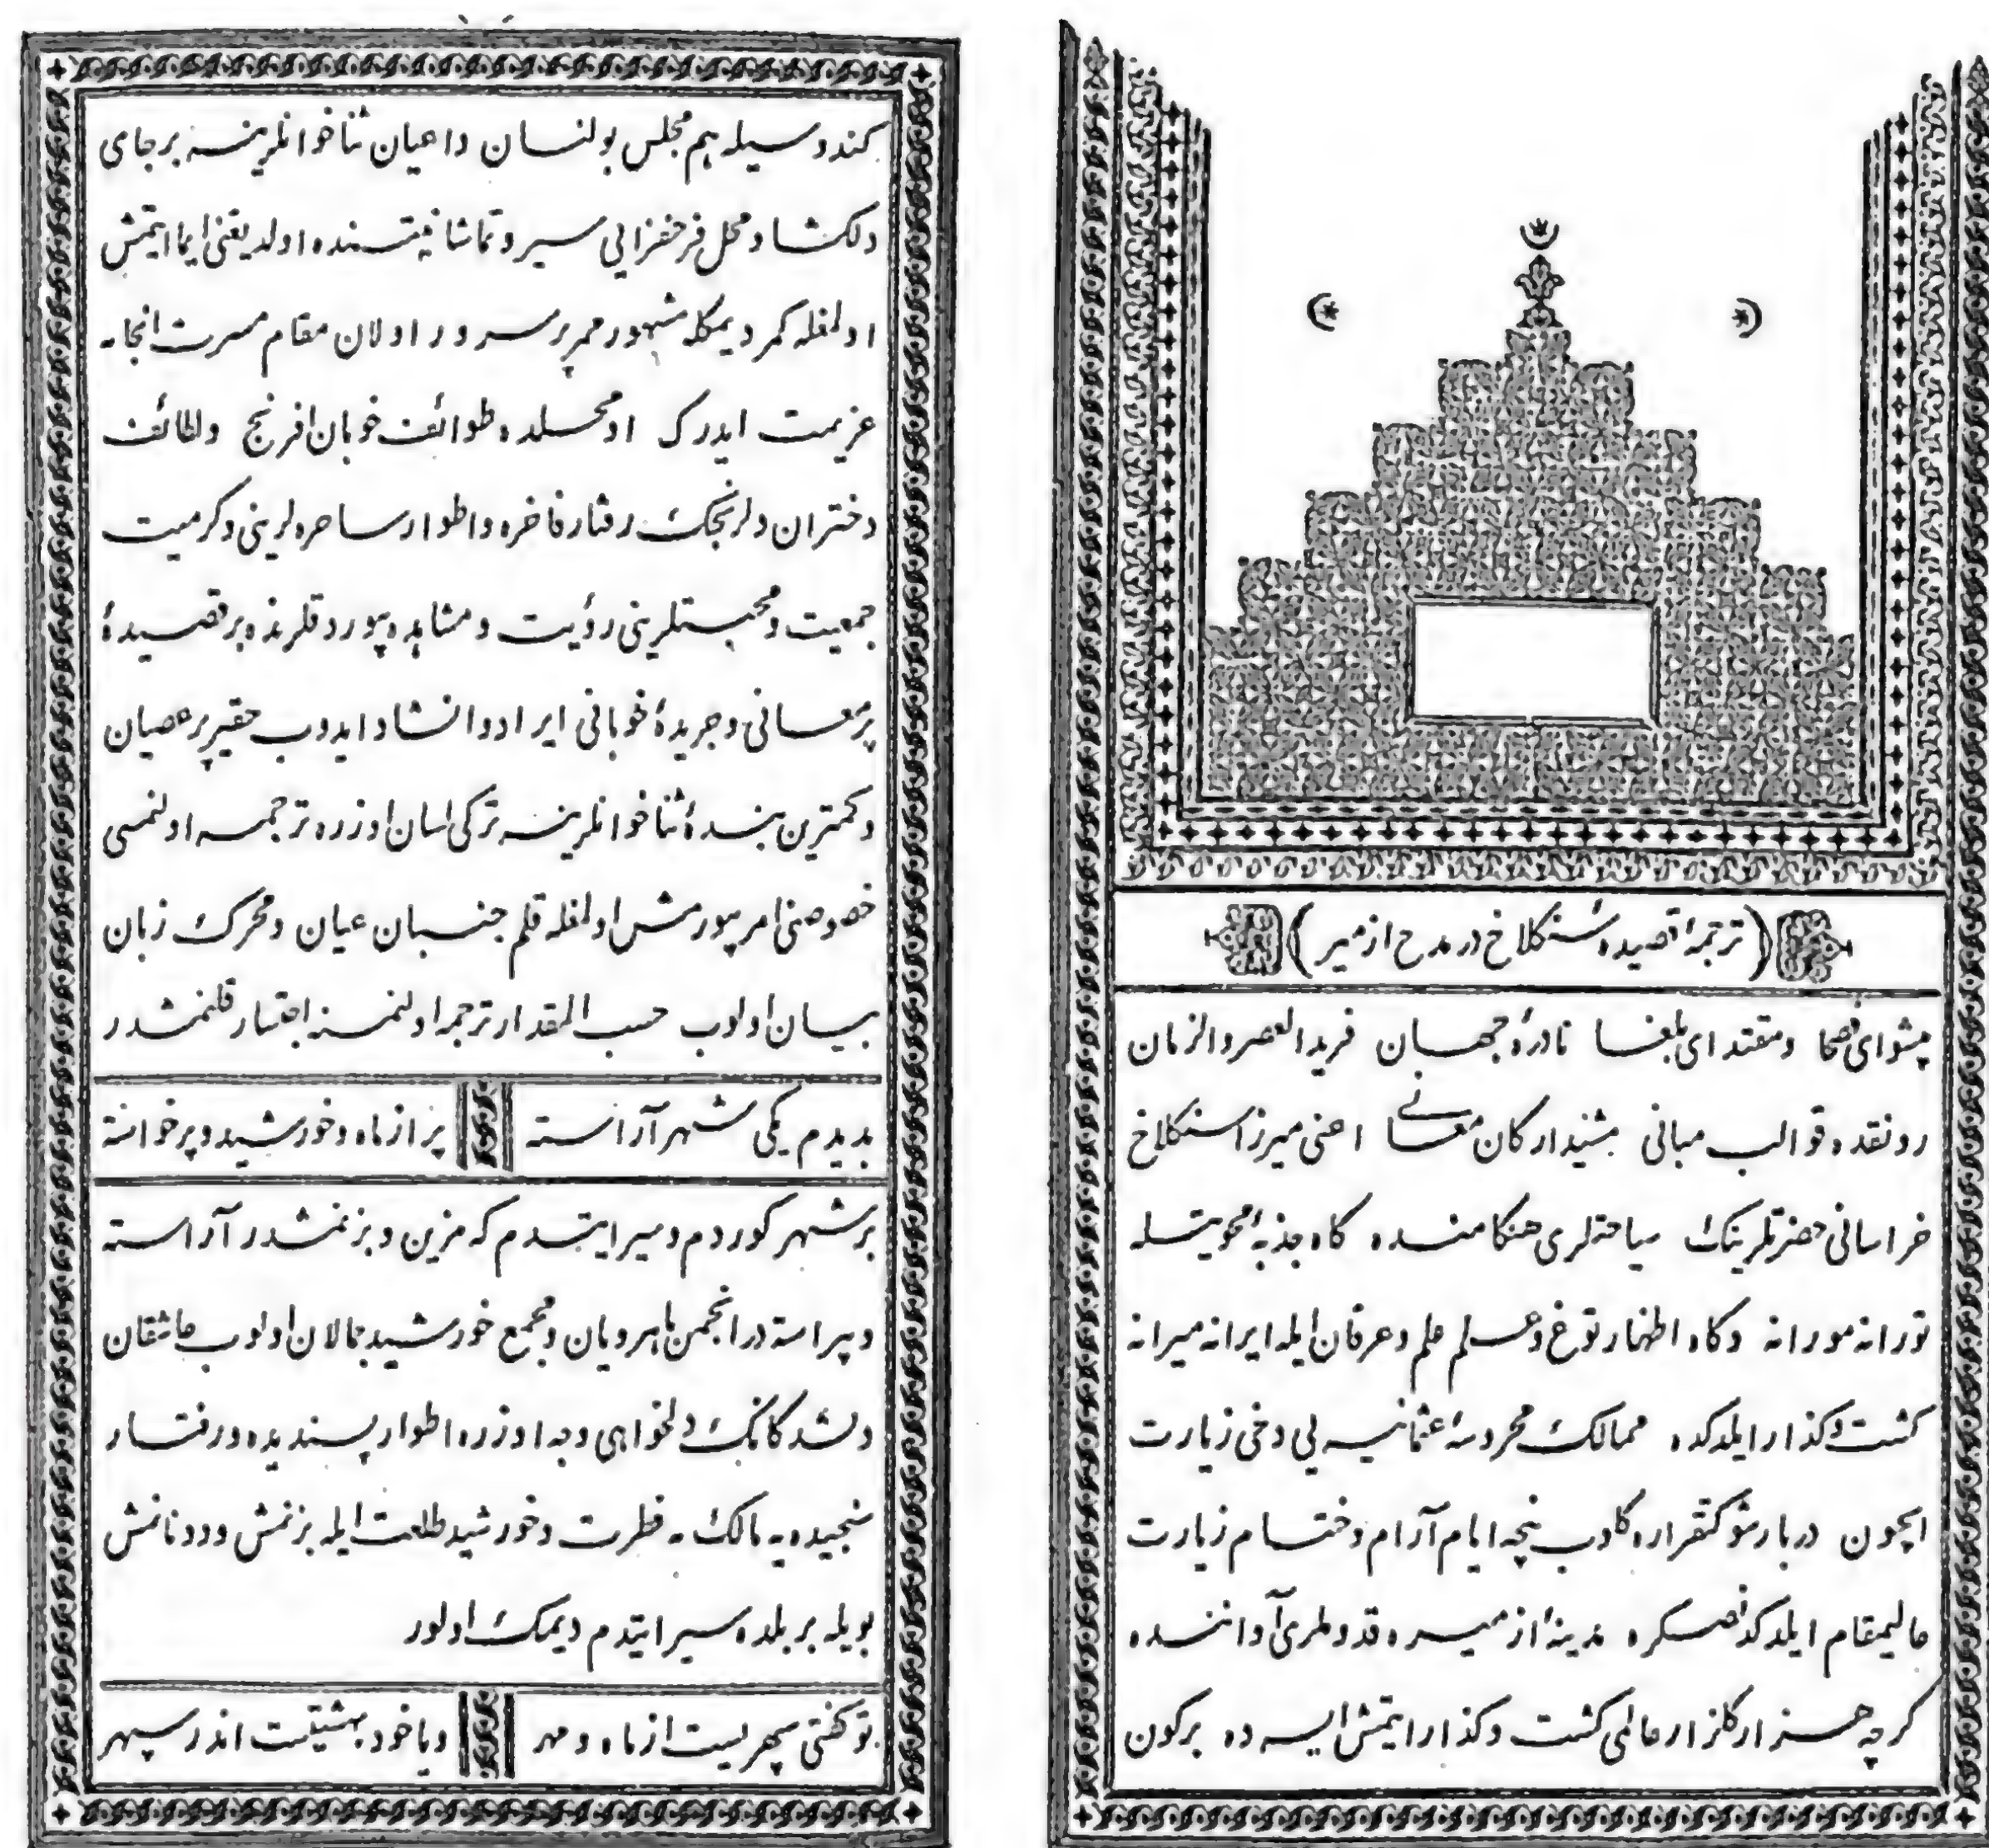 (ترجمهٔ قصیدهٔ سنکلاخ در مدح ازمیر)
پیشوای فصحا ومقتدای بلغا نادرهٔ جهان فرید العصر والزمان
رونقده قوالب مبانی مشیدارکان معانی اعنی میرزا سنکلاخ
خراسانی حضرتلرینک سیاحتلری هنکامنده کاه جذبهٔ محویتله
تورانه مورانه وکاه اظهار توغ وعلم علم وعرفان ایله ایرانه میرانه
کشت وکذار ایلدکده ممالک محروسهٔ عثمانیه یی دخی زیارت
ایچون دربار شوکتقراره کلوب نیچه ایام آرام وختام زیارت
عالیمقام ایلدکدنصکره مدینهٔ ازمیره قدوملری آواننده
کرچه هزار کلزار عالمی کشت وکذار ایتمش ایسه ده برکون
کندوسیله هم مجلس بولنان داعیان ثناخوانلرینه برجای
دلکشا ومحل فرحفزایی سیر وتماشا نیتنده اولدیغنی ایما ایتمش
اولمغله کمر دیمکله مشهور ممر پرسرور اولان مقام مسرت انجامه
عزیمت ایدرک اومحلده طوائف خوبان افرنج ولطائف
دختران دلرنجک رفتار فاخره واطوار ساحره لرینی وکرمیت
جمعیت ومحبتلرینی رؤیت ومشاهده بیوردقلرنده برقصیدهٔ
پرمعانی وجریدهٔ خوبانی ایراد وانشاد ایدوب حقیر پرعصیان
وکمترین بندهٔ ثناخوانلرینه ترکی لسان اوزره ترجمه اولنمسی
خصوصنی امر بیورمش اولمغله قلم جنبان عیان ومحرک زبان
بیان اولوب حسب المقدار ترجمه اولنمسنه اجتسار قلنمشدر
بدیدم یکی شهر آراسته
پر از ماه وخورشید وپرخواسته
برشهر کوردم وسیر ایتدم که مزین وبزنمشدر آراسته
وپیراسته در انجمن ماهرویان ومجمع خورشید جمالان اولوب عاشقان
دلشدکانک دلخواهی وجه اوزره اطوار پسندیده ورفتار
سنجیده یه مالک مه فطرت وخورشید طلعت ایله بزنمش وددنانمش
بویله بر بلده سیر ایتدم دیمک اولور
توکفتی سپهریست از ماه ومهر
ویاخود بهشتیست اندر سپهر